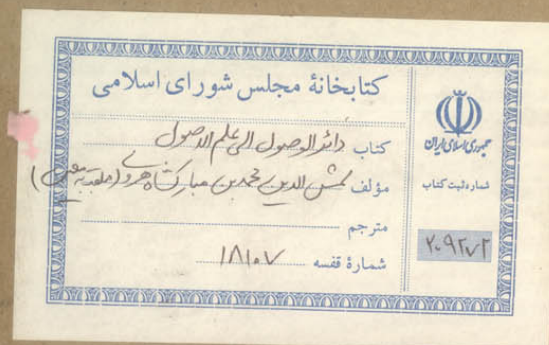 کتابخانهٔ مجلس شورای اسلامی
کتاب دائر الوصول الی علم الاصول
مؤلف شمس الدین محمد بن مبارکشاه هروی (ملقب به معین)
مترجم
شمارهٔ قفسه ۱۸۱۰۷
جمهوری اسلامی ایران
شماره ثبت کتاب
۲۰۹۲۷۲